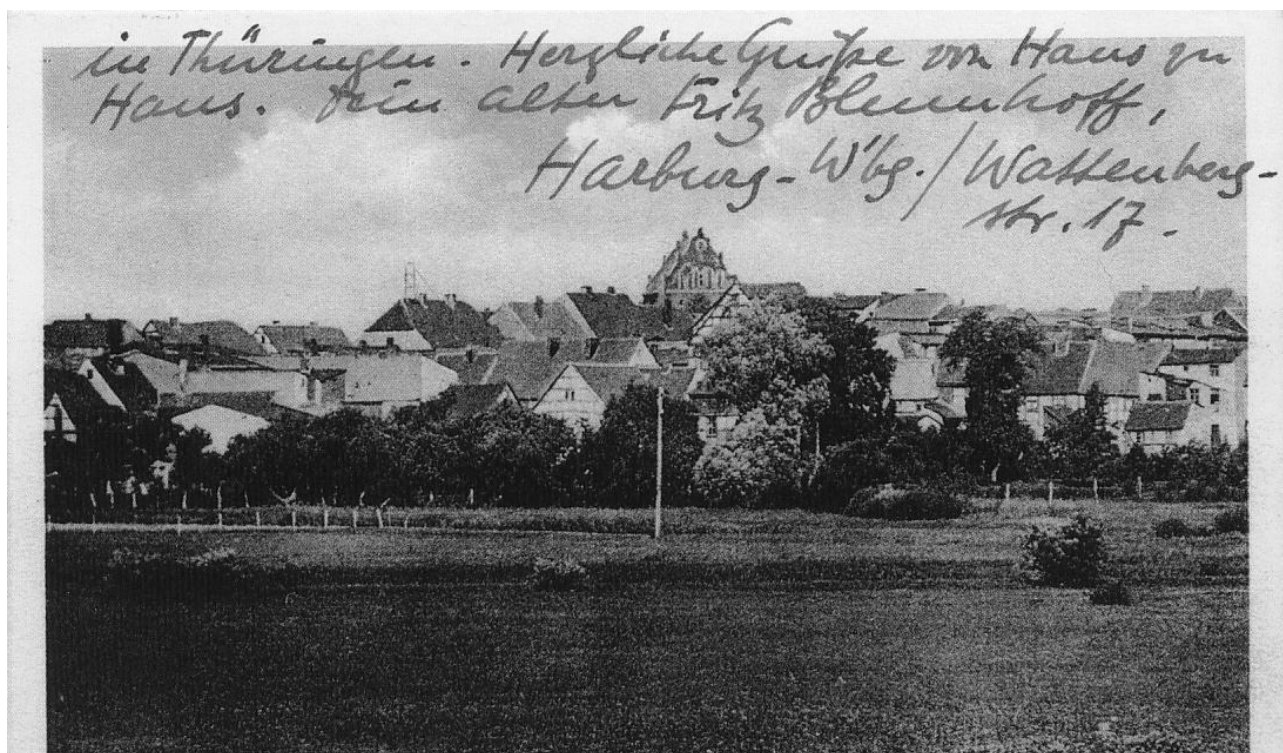 in Thüringen. Herzliche Grüße von Haus zu
Haus. Dein alter Fritz Blennhoff,
Harburg-W'bg./Wattenberg-
str. 17.